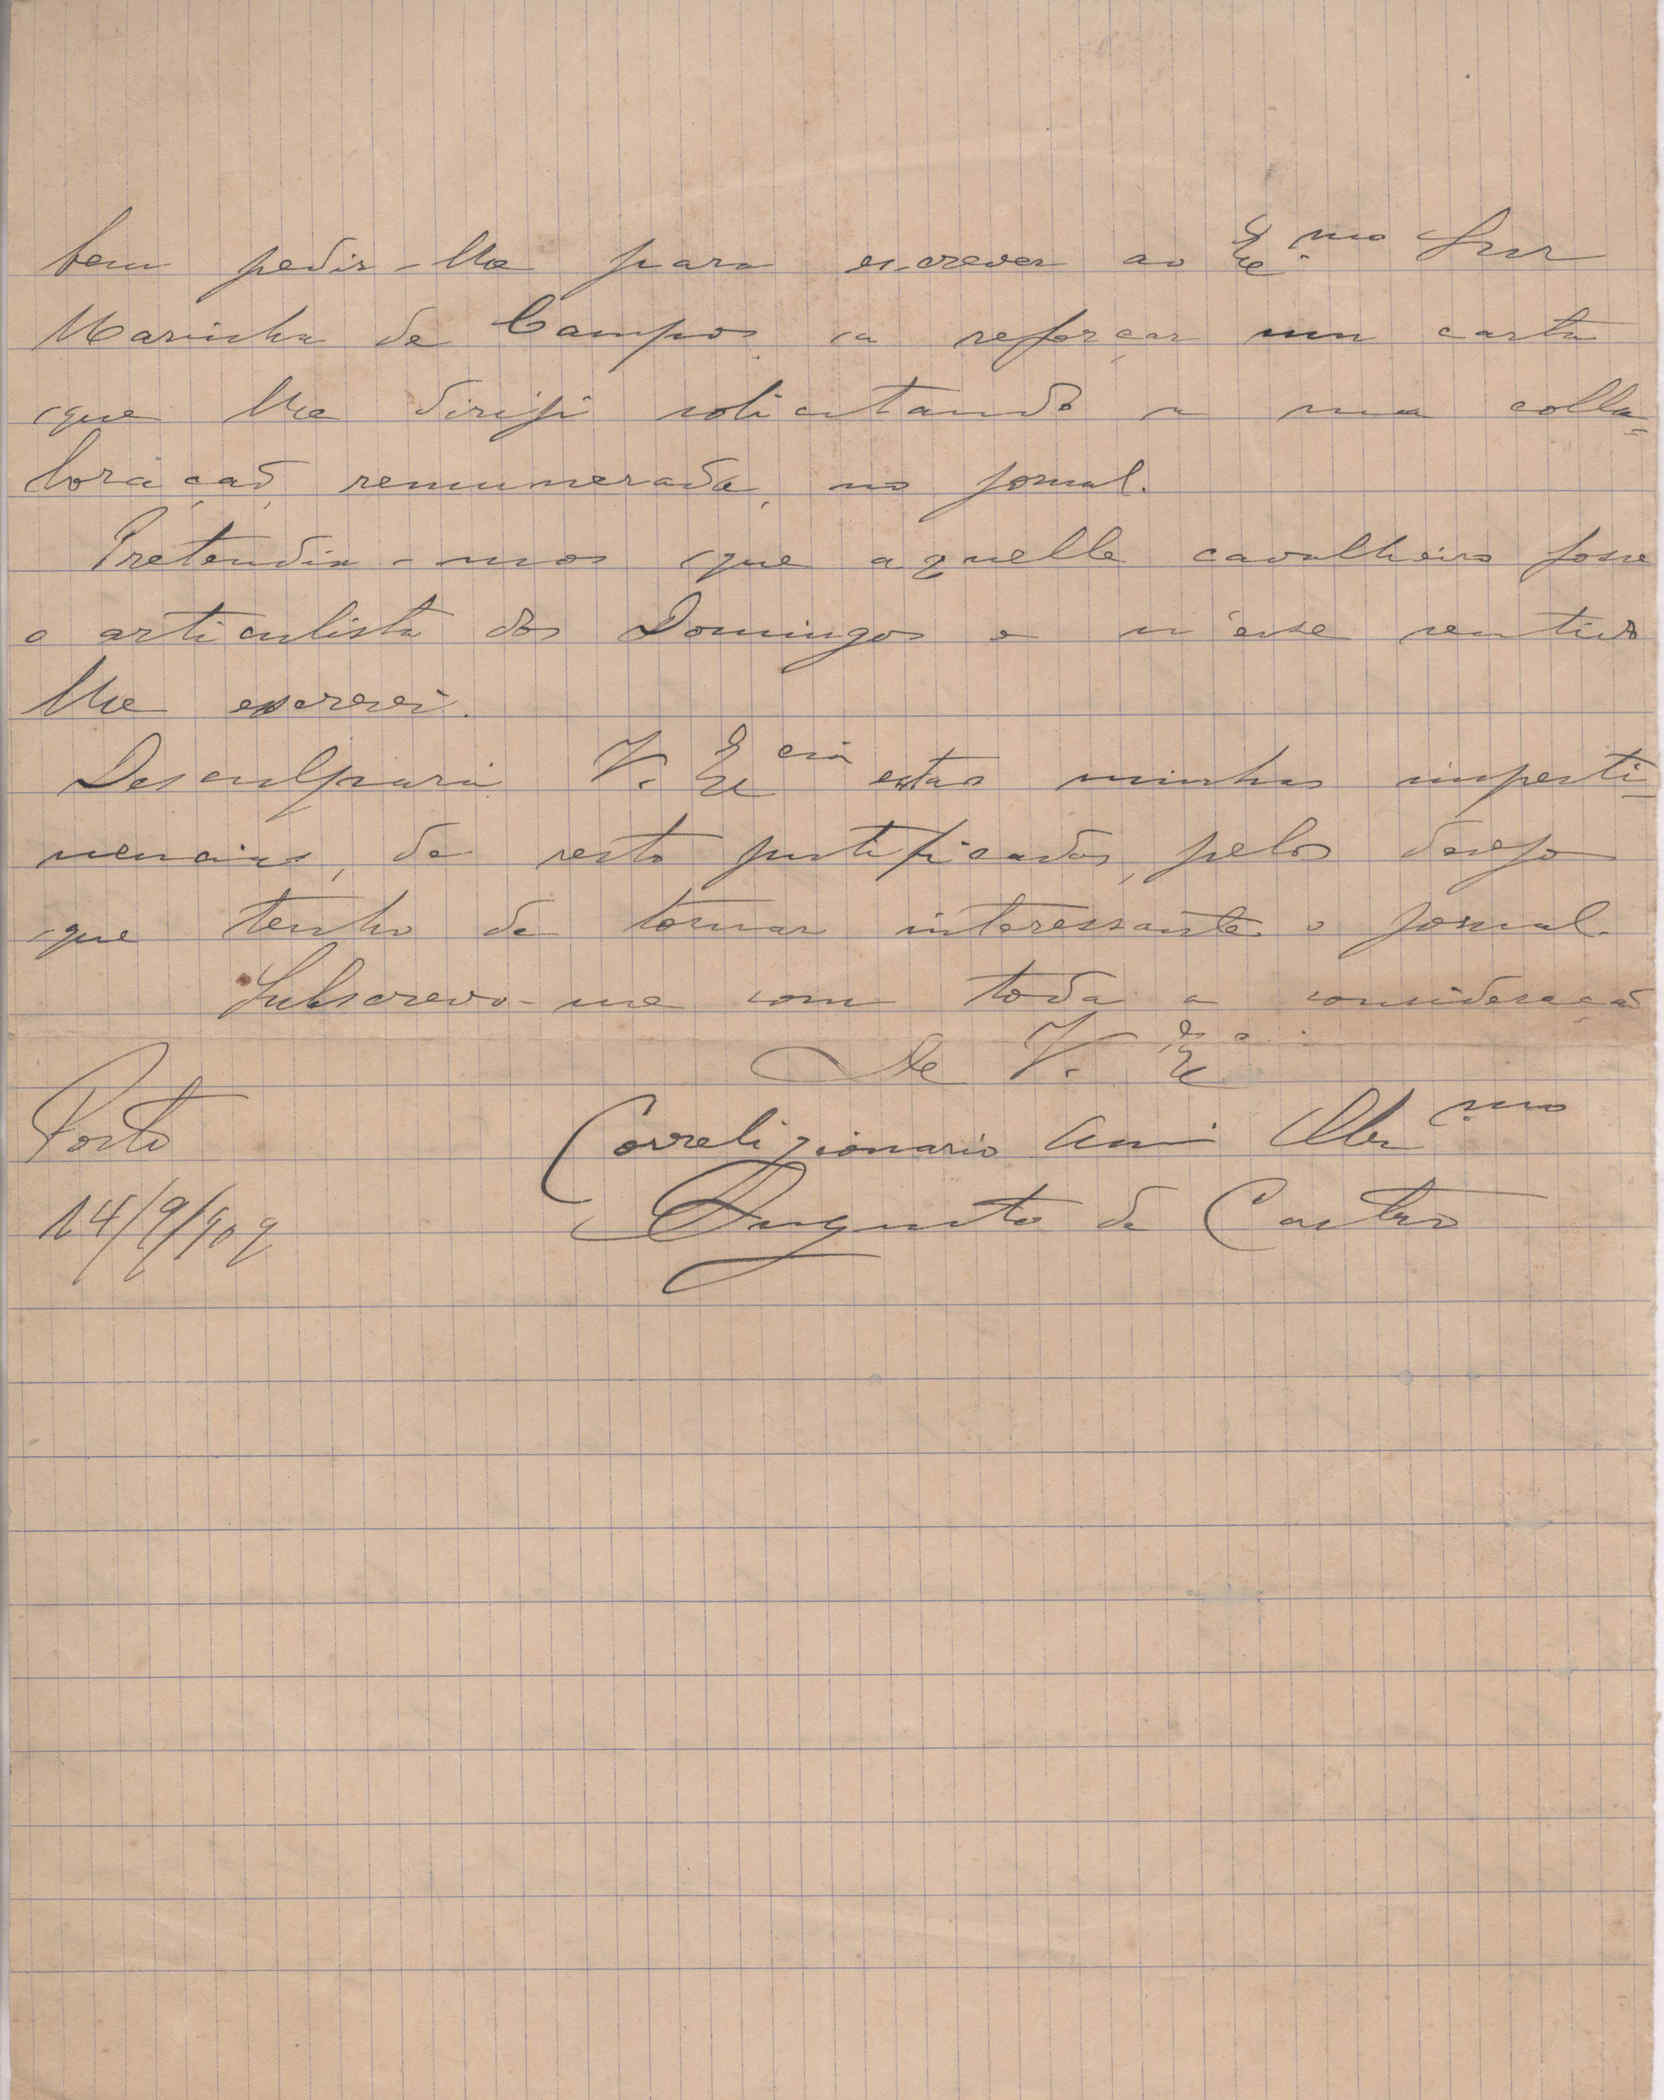 bem pedir-lhe para escrever ao Ex.mo Snr
Marinha de Campos a reforçar uma carta
que lhe dirigi solicitando a sua colla=
boração, remunerada, no jornal.
Pretendia-mos que aquelle cavalheiro fosse
o articulista dos Domingos e n'esse sentido
lhe escrevi.
Desculpará V. Ex.cia estas minhas imperti-
nencias, de resto justificadas, pelo desejo
que tenho de tornar interessante o jornal.
Subscrevo-me com toda a consideração
De V. Ex.a
Porto
Correligionario Am.o Obr.mo
14/9/909
Augusto de Castro